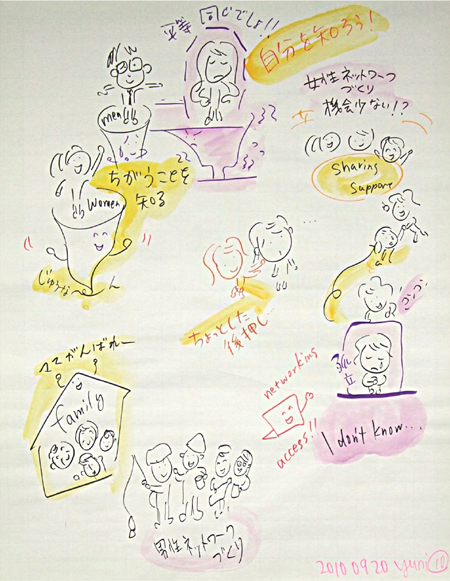 平等 同じでしょ!!
自分を知ろう!
女性ネットワーク
づくり
機会少ない!?
men
ちがうことを
知る
women
sharing
suppore
じゅうなーん
...
ちょっとした
後押し...
孤立
ママがんばれー
family
networking
access!!
I don't know...
男性ネットワーク
づくり
20100920 yuni 10